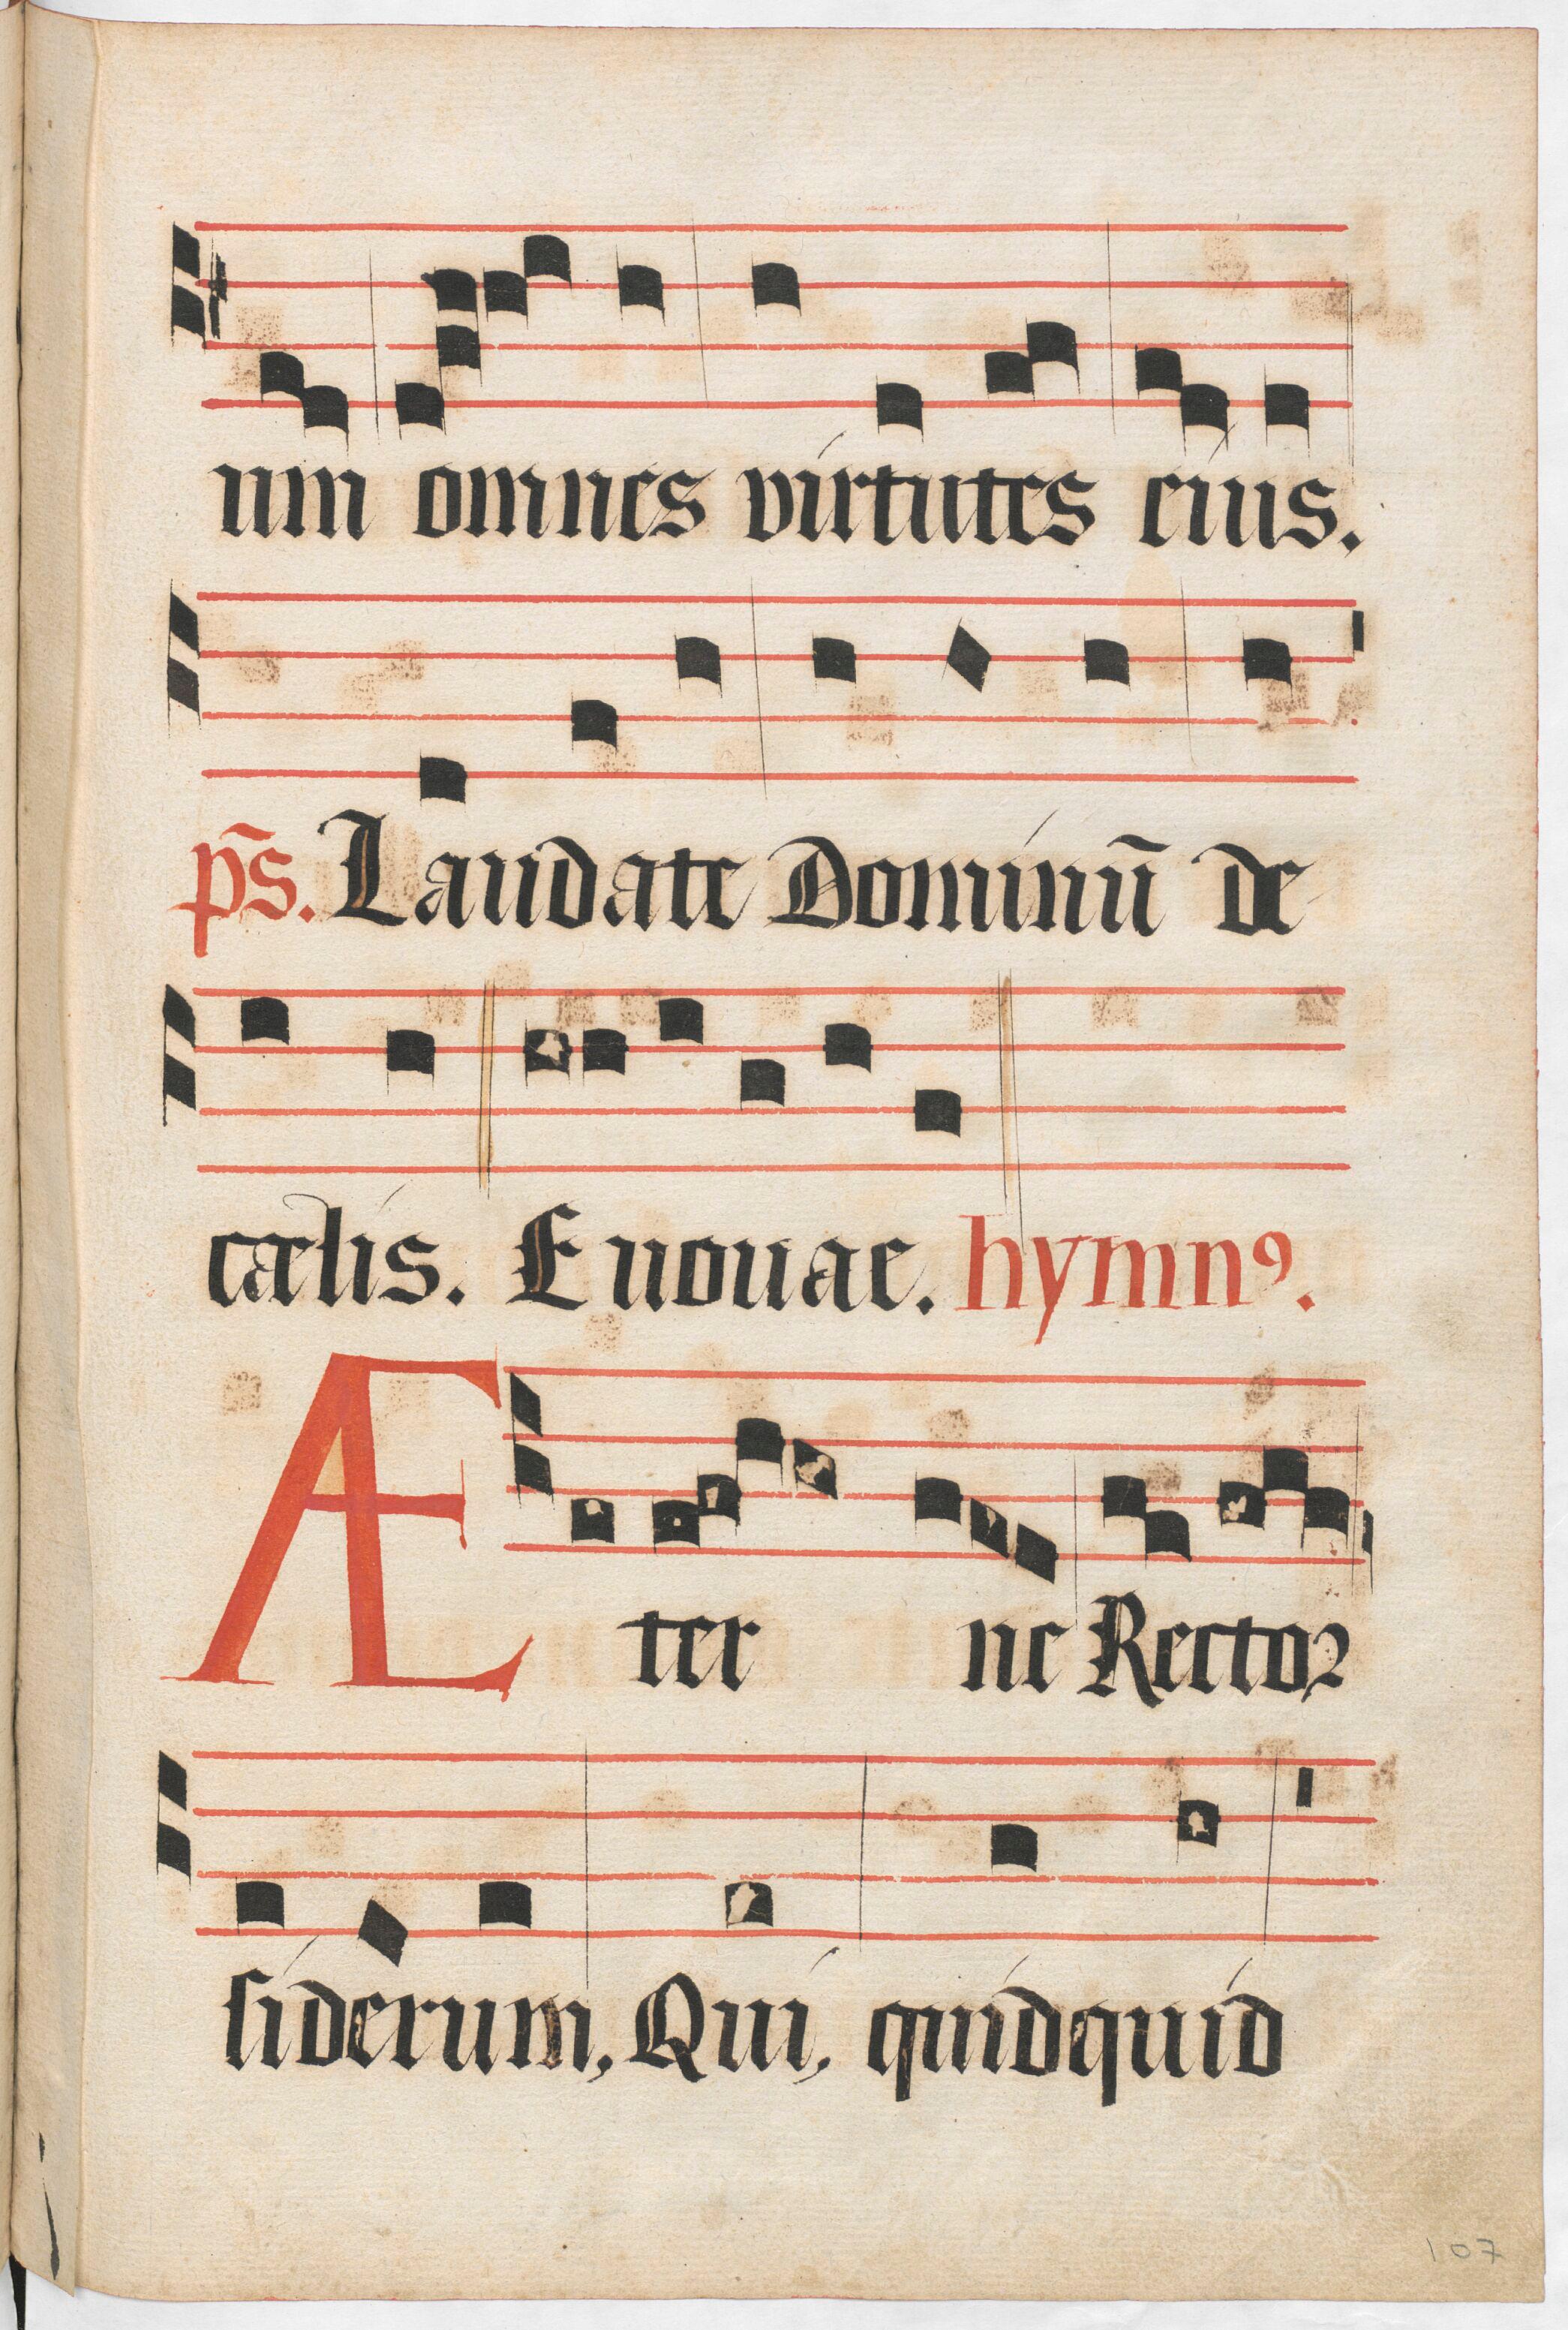 um omnes virtutes eius.
ps̄. Laudate Dominū de
cælis. Euouae. hymnꝰ.
Æterne Rector
siderum, Qui, quidquid
107